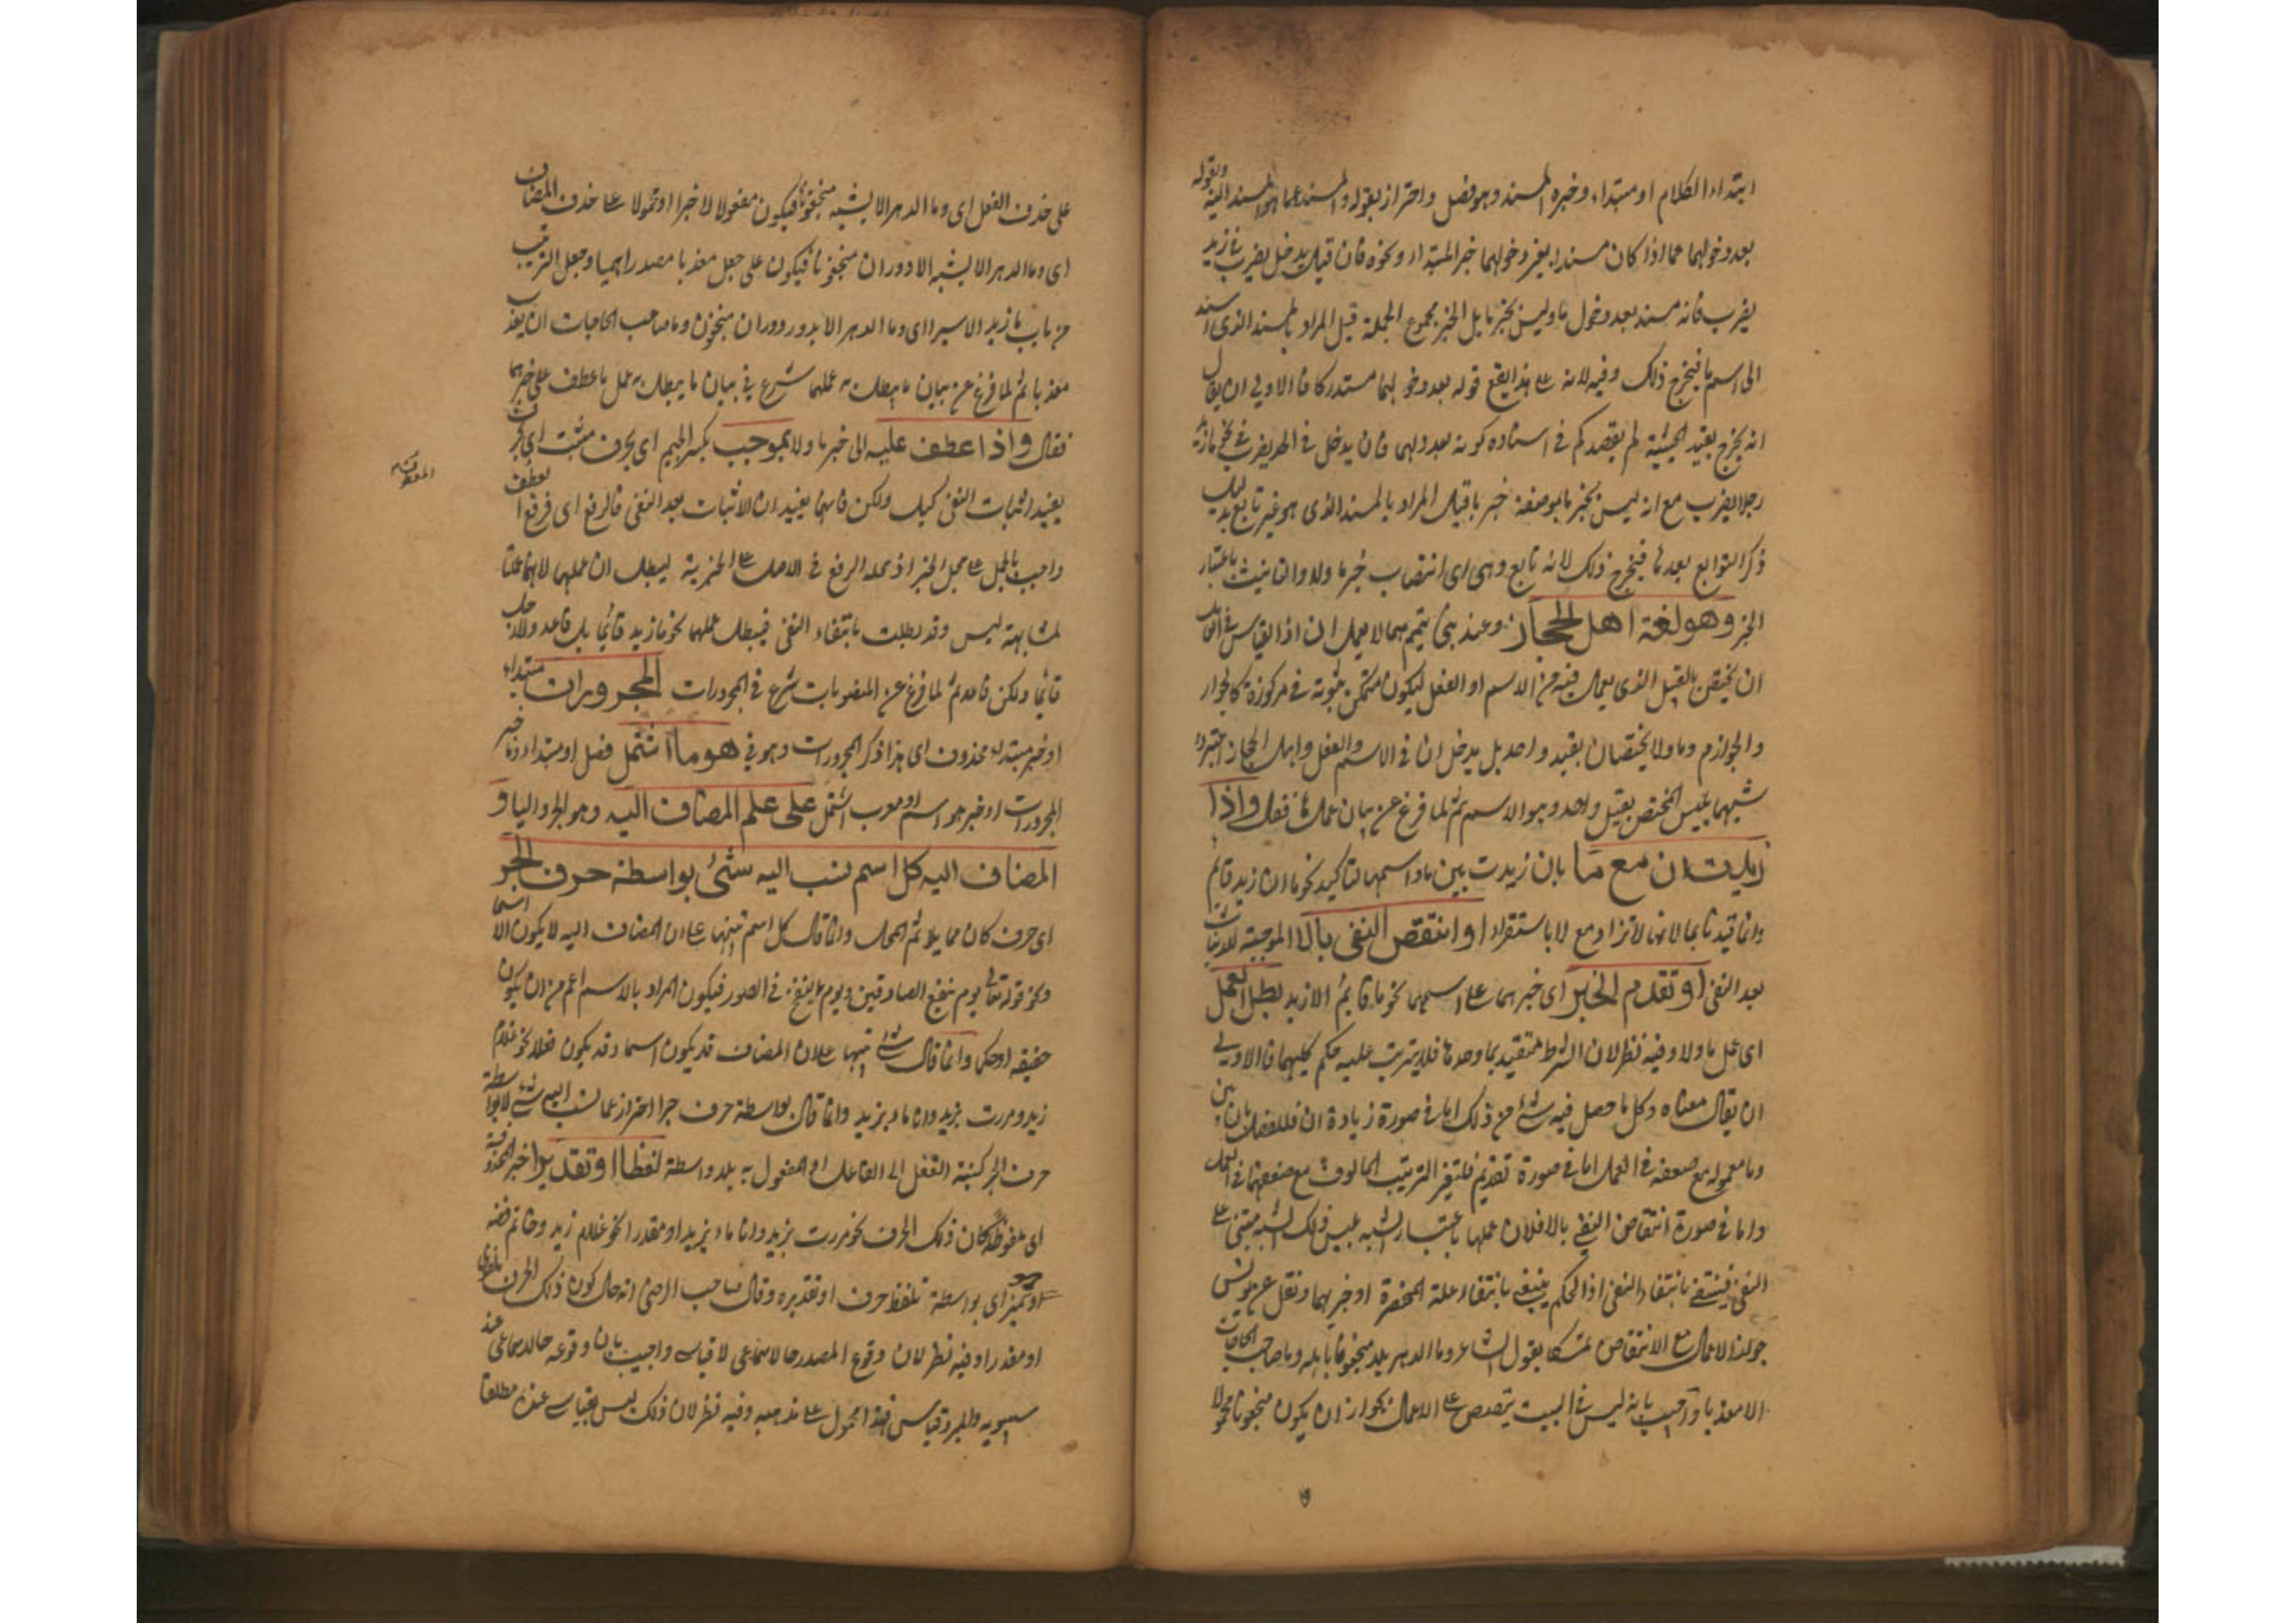 ابتداء الكلام او مبتداء وخبره المسند وهو فصل واحتراز بقوله والمسند عما هو المسند اليه وبقوله
بعد دخولهما عما اذا كان مسندا بغير دخولهما خبر المبتداء ونحوه فان قيل يدخل يضرب فى زيد
يضرب فانه مسند بعد دخول ما وليس بخبر ما بل الخبر مجموع الجملة قيل المراد بالمسند الذى اسند
الى اسم ما فيخرج ذلك وفيه لانه على هذا يقع قوله بعد دخولهما مستدركا فالاولى ان يقال
انه يخرج بقيد الحيثية لم يقصدكم فى اسناده كونه بعد فان يدخل فى الحد يضرب فى نحو ما زيد
رجلا يضرب مع انه ليس بخبر ما بل صفة خبر ما قيل المراد بالمسند الذى هو غير تابع بدليل
ذكر التوابع بعدها فيخرج ذلك لانه تابع وهى اى انتصاب خبر ما ولا والتانيث باعتبار
الخبر وهو لغة اهل الحجاز وعند بنى تميم هما لا يعملان اذ القياس فى العامل
ان يختص بالقبيل الذى يعمل فيه من الاسم او الفعل ليكون متمكن بثبوته فى مركوزة كالجوار
والجوازم وما ولا يختصان بقبيل واحد بل يدخلان فى الاسم والفعل واهل الحجاز اعتبروا
شبهها بليس المختص بقبيل واحد وهو الاسم ثم لما فرغ عن بيان عملها فقال واذا
زيدت ان مع ما بان زيدت بين ما واسمها لتاكيد نحو ما ان زيد قائم
وانما قيد بما لانها لا تزاد مع لا باستقراء او انتقض النفى بالا الموجبة للاثبات
بعد النفى او تقدم الخبر اى خبرهما على اسمهما نحو ما قائم الا زيد بطل العمل
اى عمل ما ولا وفيه نظر لان الشرط متقيد بما وحدها فلا يترتب عليه حكم كليهما فالاولى
ان يقال معناه وكل ما حصل فيه شئ من ذلك اما فى صورة زيادة ان فللفصل بان بين
وما معموله مع ضعفه فى العمل اما فى صورة تقديم فلتغير الترتيب المالوف مع ضعفهما فى العمل
واما فى صورة انتقاض النفى بالا فلان عملها باعتبار الشبه بليس وذلك الشبه مبتنى على
النفى فينتفى بانتفاء النفى اذ الحكم ينتفى بانتفاء علة المنحصرة او خبرهما ونقل عن يونس
جواز الاعمال مع الانتقاض تمسكا بقول الشاعر وما الدهر الا منجنونا باهله وما صاحب الحاجات
الا معذبا واجيب بانه ليس فى البيت تنصيص على الاعمال لجواز ان يكون منجنونا محمولا
على حذف الفعل اى وما الدهر الا يشبه منجنونا فيكون مفعولا لا خبرا او محمولا على حذف المضاف
اى وما الدهر الا يشبه الا دوران منجنونا فيكون على جعل معذبا مصدرا ميميا وجعل التركيب
من باب ما زيد الا سيرا اى وما الدهر الا يدور دوران منجنون وما صاحب الحاجات الا يعذب
معذبا ثم لما فرغ عن بيان ما يبطل به عملهما شرع فى بيان ما يبطل به عمل ما عطف على خبرهما
فقال واذا عطف عليه الى خبر ما ولا بموجب بكسر الجيم اى بحرف مثبت اى بحرف
يفيد اثبات النفى كبل ولكن فانهما يفيدان الاثبات بعد النفى فالرفع اى فرفع المعطوف
واجب بالحمل على محل الخبر اذ محله الرفع فى الاصل على الخبرية ليبطلان عملهما لانهما عملتا
لمشابهة ليس وقد بطلت بانتفاء النفى فيبطل عملهما نحو ما زيد قائما بل قاعد ولا رجل
قائما ولكن قاعد ثم لما فرغ عن المنصوبات شرع فى المجرورات المجرورات مبتداء
او خبر مبتداء محذوف اى هذا ذكر المجرورات وهو فى هو ما اشتمل فصل او مبتداء وما خبر
المجرورات او خبر هو اسم او معرب اشتمل على علم المضاف اليه وهو الجر والياء و
المضاف اليه كل اسم نسب اليه شئ بواسطة حرف الجر
اى حرف كان مما يلائم المحل وانما قال كل اسم تنبيها على ان المضاف اليه لا يكون الا اسما
ونحو قوله تعالى يوم ينفع الصادقين ويوم ينفخ فى الصور فيكون المراد بالاسم اعم من ان يكون
حقيقة او حكما وانما قال شئ تنبيها على ان المضاف قد يكون اسما وقد يكون فعلا نحو غلام
زيد ومررت بزيد وانا مار بزيد وانما قال بواسطة حرف جر احتراز عما نسب اليه شئ لا بواسطة
حرف الجر كنسبة الفعل الى الفاعل او المفعول به بلا واسطة لفظا او تقديرا خبر المحذوفة
اى ملفوظة كان ذلك الحرف نحو مررت بزيد وانا مار بزيد او مقدرا نحو غلام زيد وخاتم فضة
او تميز اى بواسطة تلفظ حرف او تقديره وقال صاحب الرضى انه حال كون ذلك الحرف ملفوظا
او مقدرا وفيه نظر لان وقوع المصدر حالا سماعى لا قياسى واجيب بان وقوعه حالا سماعى عند
سيبويه والمبرد قياس فهذا محمول على مذهبه وفيه نظر لان ذلك ليس بقياس عنده مطلقا